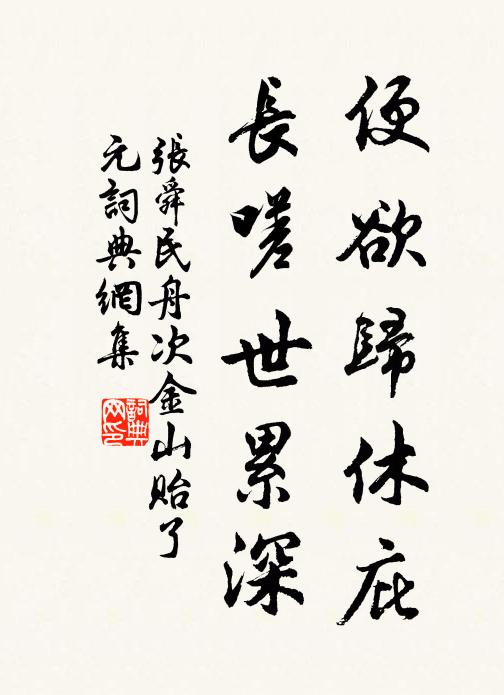 便欲歸休庇
長嗟世累深
張舜民舟次金山貽了
元詞典網集
詞典網印